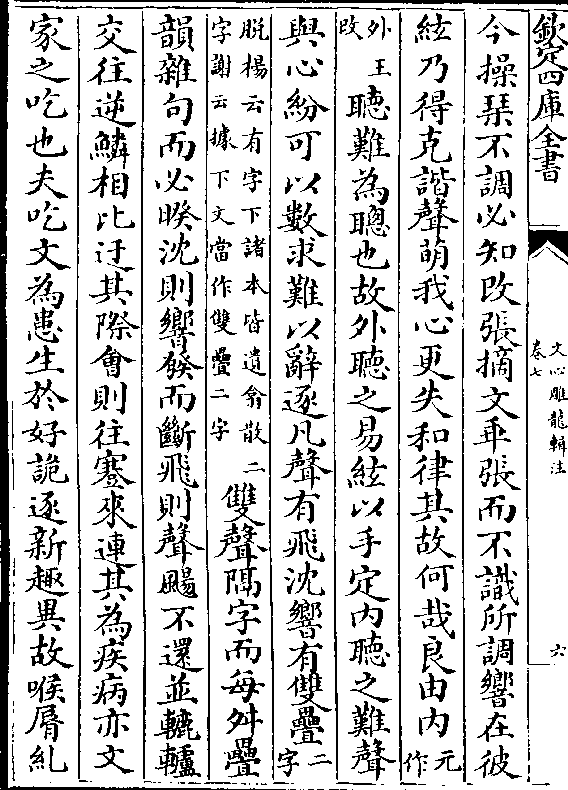 欽定四庫全書
文心雕龍輯注
卷七
六
今操琴不調必知改張摘文乖張而不識所調響在彼
絃乃得克諧聲萌我心更失和律其故何哉良由内元作
外王改聽難為聰也故外聽之易絃以手定内聽之難聲
與心紛可以數求難以辭逐凡聲有飛沈響有雙疊二字
脱楊云有字下諸本皆遺翕散二字謝云據下文當作雙疊二字雙聲隔字而每舛疊
韻雜句而必睽沈則響發而斷飛則聲颺不還並轆轤
交往逆鱗相比迂其際會則往蹇來連其為疾病亦文
家之吃也夫吃文為患生於好詭逐新趣異故喉脣糺